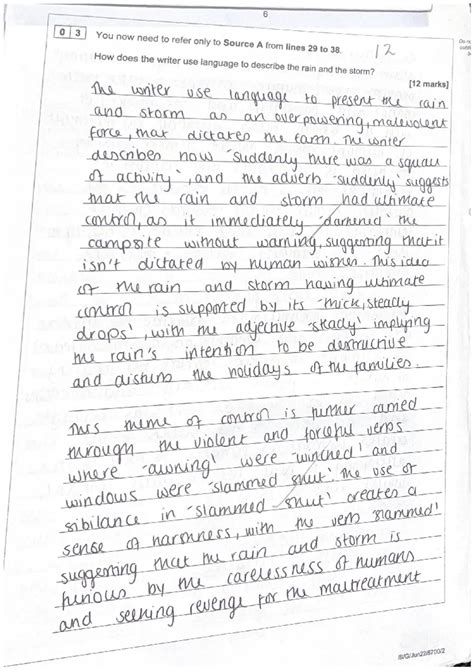 6
0 3 You now need to refer only to Source A from lines 29 to 38.
12
How does the writer use language to describe the rain and the storm?
[12 marks]
The writer use language to present the rain
and storm as an overpowering, malevolent
force, that dictates the Earth. The writer
describes how 'suddenly there was a squall
of activity', and the adverb 'suddenly' suggests
that the rain and storm had ultimate
control, as it immediately 'darkened' the
campsite without warning, suggesting that it
isn't dictated by human wishes. This idea
of the rain and storm having ultimate
control is supported by its 'thick, steady
drops', with the adjective 'steady' implying
the rain's intention to be destructive
and disturb the holidays of the families.
This theme of control is further carried
through the violent and forceful verbs
where 'awning' were 'winched' and
windows were 'slammed shut'. The use of
sibilance in 'slammed shut' creates a
sense of harshness, with the verb 'slammed'
suggesting that the rain and storm is
furious by the carelessness of humans
and seeking revenge for the maltreatment
IB/G/Jun22/8700/2